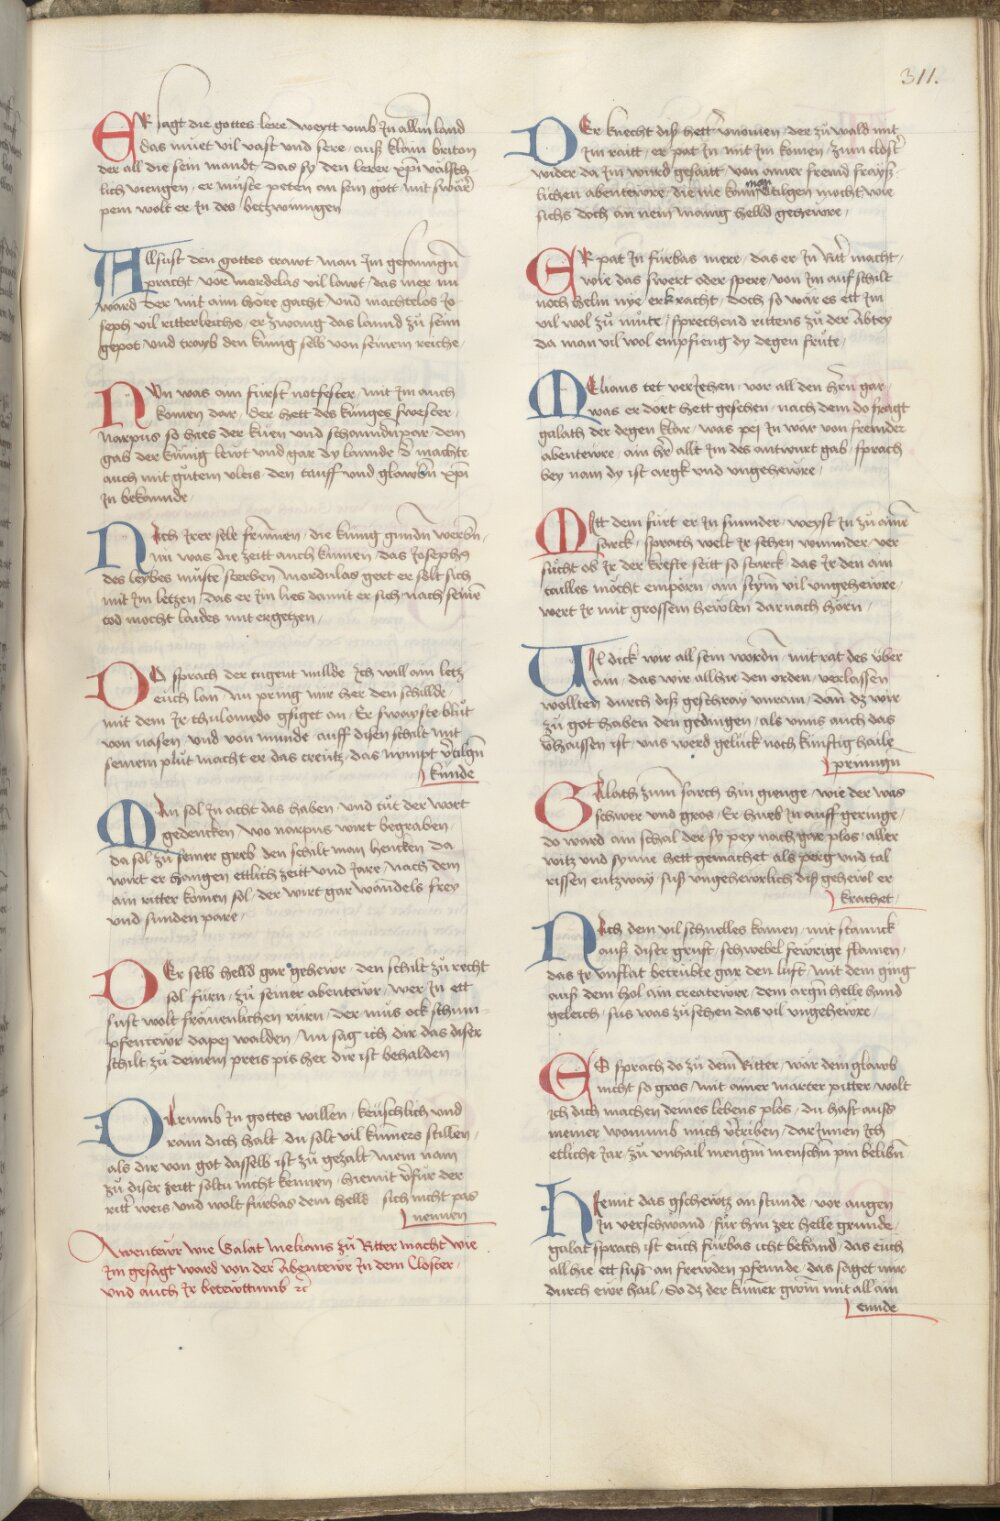 311.
ER sagt die gottes lere weytt vmb Jn allm land
das muet vil vast vnd sere auß klain briton
der all die sein mandt das sy den lerer xpi valsch-
lich viengen / er muste peten an sein gott mit swar
pein wolt er Jn des betzwingen
Allsust den gottes trawt man Jm gefanngn
pracht / vor mordelas vil lawt / das mer nu
ward der mit aim hore gacht vnd machtelos Jo
seph vil ritterleiche / er zwang das lannd zu seim
gepot vnd trayb den kunig selb von seinem reiche /
Nvn was ain furst notfester / mit Jm auch
komen dar / der hett des kunges swester /
narpus so haes der kuen vnd schanndnpar / dem
gab der kunig lewt vnd gar dy lannde / machte
auch mit gutem vleis / den tauff vnd glawbn xpi
Jn bekannde /
NAch Jrer sele frumen / die kunig gundn werbn /
nu was die zeitt auch kumen / das Josephs
des leybes muste sterben / mordulas gert er solt sich
mit Jm letzen / das er Jm lies damit er sich nach seinem
tod mocht laides mit ergetzen /
DO sprach der tugent millde Jch will ain letz
euch lan / nu pring mir her den schillde /
mit dem Jr tholomedo gsiget an / Er swayste blut
von nasen vnd von munde / auff disen schilt mit
seinem plut macht er das creutz / das nympt vertilgn
kunde
MAn sol Jn acht das haben / vnd tut der wort
gedencken / wo narpus wirt begraben /
da sol zu seiner greb den schilt man hencken / da
wirt er hangen ettlich zeitt vnd Jare / nach dem
ain ritter komen sol / der wirt gar wandels frey
vnd sunden pare /
DEr selb helld gar gehewr / den schilt zu recht
sol furn / zu seiner abentewr / wer Jn ett
sust wolt frauenlichen rurn / der mus ock schim-
pfentewr dapej walden / Nu sag ich dir das diser
schilt zu deinem preis pis her dir ist behalden
DArumb Jn gottes willen / keuschlich vnd
rain dich halt / du solt vil kumers stillen /
als dir von got dasselb ist zu gezalt mein nam
zu diser zeitt soltu nicht kennen / hiemit verfur der
ritter weis vnd wolt furbas dem helld sich nicht pas
nennen
Awenteur wie Galat melians zu Ritter macht wie
Jm gesagt ward von der abentewr Jn dem closter /
vnd auch Jr betewttumb etc
DEr knecht diß hett vernomen / der zu wald mit
Jm raitt / er pat Jn mit Jm komen / zum closter
wider da Jm wurd gesaitt / von ainer fremd frayß-
lichen abentewre / die nie kain man tilgen mocht wie
sichs doch an nem manig helld gehewre /
ER pat Jn furbas mere / das er Jn Ritter macht /
wie das swert oder spere / von Jm auf schilt
noch helm nye erkracht / doch so war es ett Jm
vil wol zu mute / sprechend rittens zu der Abtey
da man vil wol empfieng dy degen frute /
MElians tet verJehen / vor all den hern gar /
was er dort hett gesehen / nach dem do fragt
galath der degen klar / was pej Jn war von fremder
abentewre / ain her allt Jm des antwurt gab / sprach
bey nam dy ist argk vnd vngehewre /
MItt dem furt er Jn sunnder / weyst Jn zu ainem
sarck / sprach welt Jr sehen wunnder / ver
sucht ob Jr der krefte seitt so starck / das Jr den ain
taille mocht emporn / ain stym vil vngehewre /
wert Jr mit grossem hewlen darnach horn /
VIl dick wir all sein wordn / mit rat des vber
ain / das wir allhie den orden / verlassen
wollten durch diß geschray vnrain / dann dz wir
zu got haben den gedingen / als vnns auch das
verhaissen ist / vns werd geluck noch kunftig haile
pringn
GAlath zum sarch hin gienge / wie der was
schwer vnd gros / Er hueb Jn auff geringe /
do ward ain schal der sy pey nach gar plos / aller
witz vnd synne hett gemachet / als perg vnd tal
rissen entzway / sust vngehewrlich diß gehewl er
krachet /
NAch dem vil schnelles kamen / mit stannck
auß diser gruft / schwebel fewrige flamen /
das Jr vnflat betrubte gar den luft / mit dem ging
auß dem hol ain createwre / dem argn helle hund
geleich / sus was zu sehen das vil vngehewre /
ES sprach do zu dem Ritter / war dein glawb
nicht so gros / mit ainer marter pitter / wolt
ich dich machen deines lebens plos / du hast auss
meiner wonnunb mich vertriben / dar Jnnen Jch
etliche Jar / zu vnhail mengm menschn pin belibn
HIemit das gschewtz an stunde / vor augen
Jn verschwand / fur hin zer helle grunde /
galat sprach ist euch furbas icht bekand / das euch
all hie ett sust an frewden pfennde / das saget mir
durch ewr hail / So dz der kumer gwin mit all ain
ennde